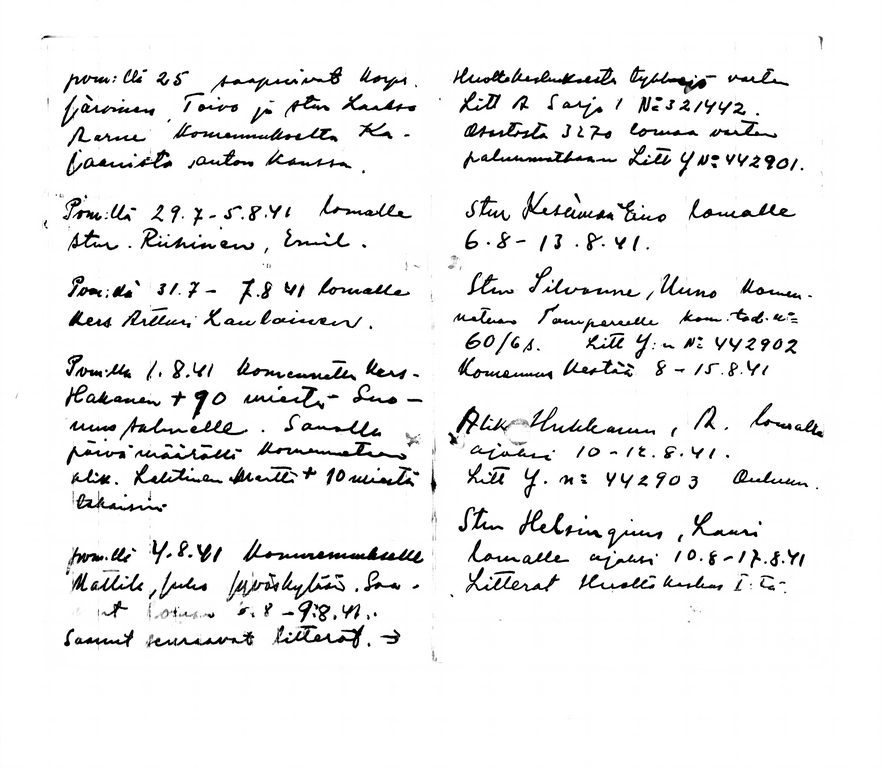 pvm:llä 25 saapuivat Korpr.
Järvinen, Toivo ja stm Laakso
Aarne Komennukselta Ka-
jaanista auton kanssa.
Pvm:llä 29.7-5.8.41 lomalle
stm. Riihinen, Emil.
Pvm:llä 31.7 - 7.8 41 lomalle
Kers Artturi Laulainen.
Pvm:llä 1.8.41 Komennettu Kers-
Hakanen + 90 miestä Suo-
mussalmelle. Samalla
päivämäärällä Komennetaan
alik. Lehtinen Martti + 10 miestä
takaisin
pvm:llä 4.8.41 Komennukselle
Mattila, Juho Jyväskylään. Saa-
nut loman 6.8 - 9.8.41.
Saanut seuraavat litterat. →
Huoltokeskuksesta työhönajo varten
Litt A Sarja 1 Nº 321442.
Osastosta 3270 lomaa varten
paluumatkaan Litt Y Nº 442901.
Stm Kesämaa Eino lomalle
6.8 - 13.8.41.
Stm Silvonne, Uuno Komen-
netaan Tampereelle kom.tod.nº
60/6s. Litt Y:n Nº 442902
Komennus Kestää 8 - 15.8.41
Alik Hukkanen, A. lomalle
ajaksi 10-12.8.41.
Litt Y. nº 442903 Ouluun.
Stm Helsingius, Lauri
lomalle ajaksi 10.8-17.8.41
Litterat Huoltokeskus I:tä.